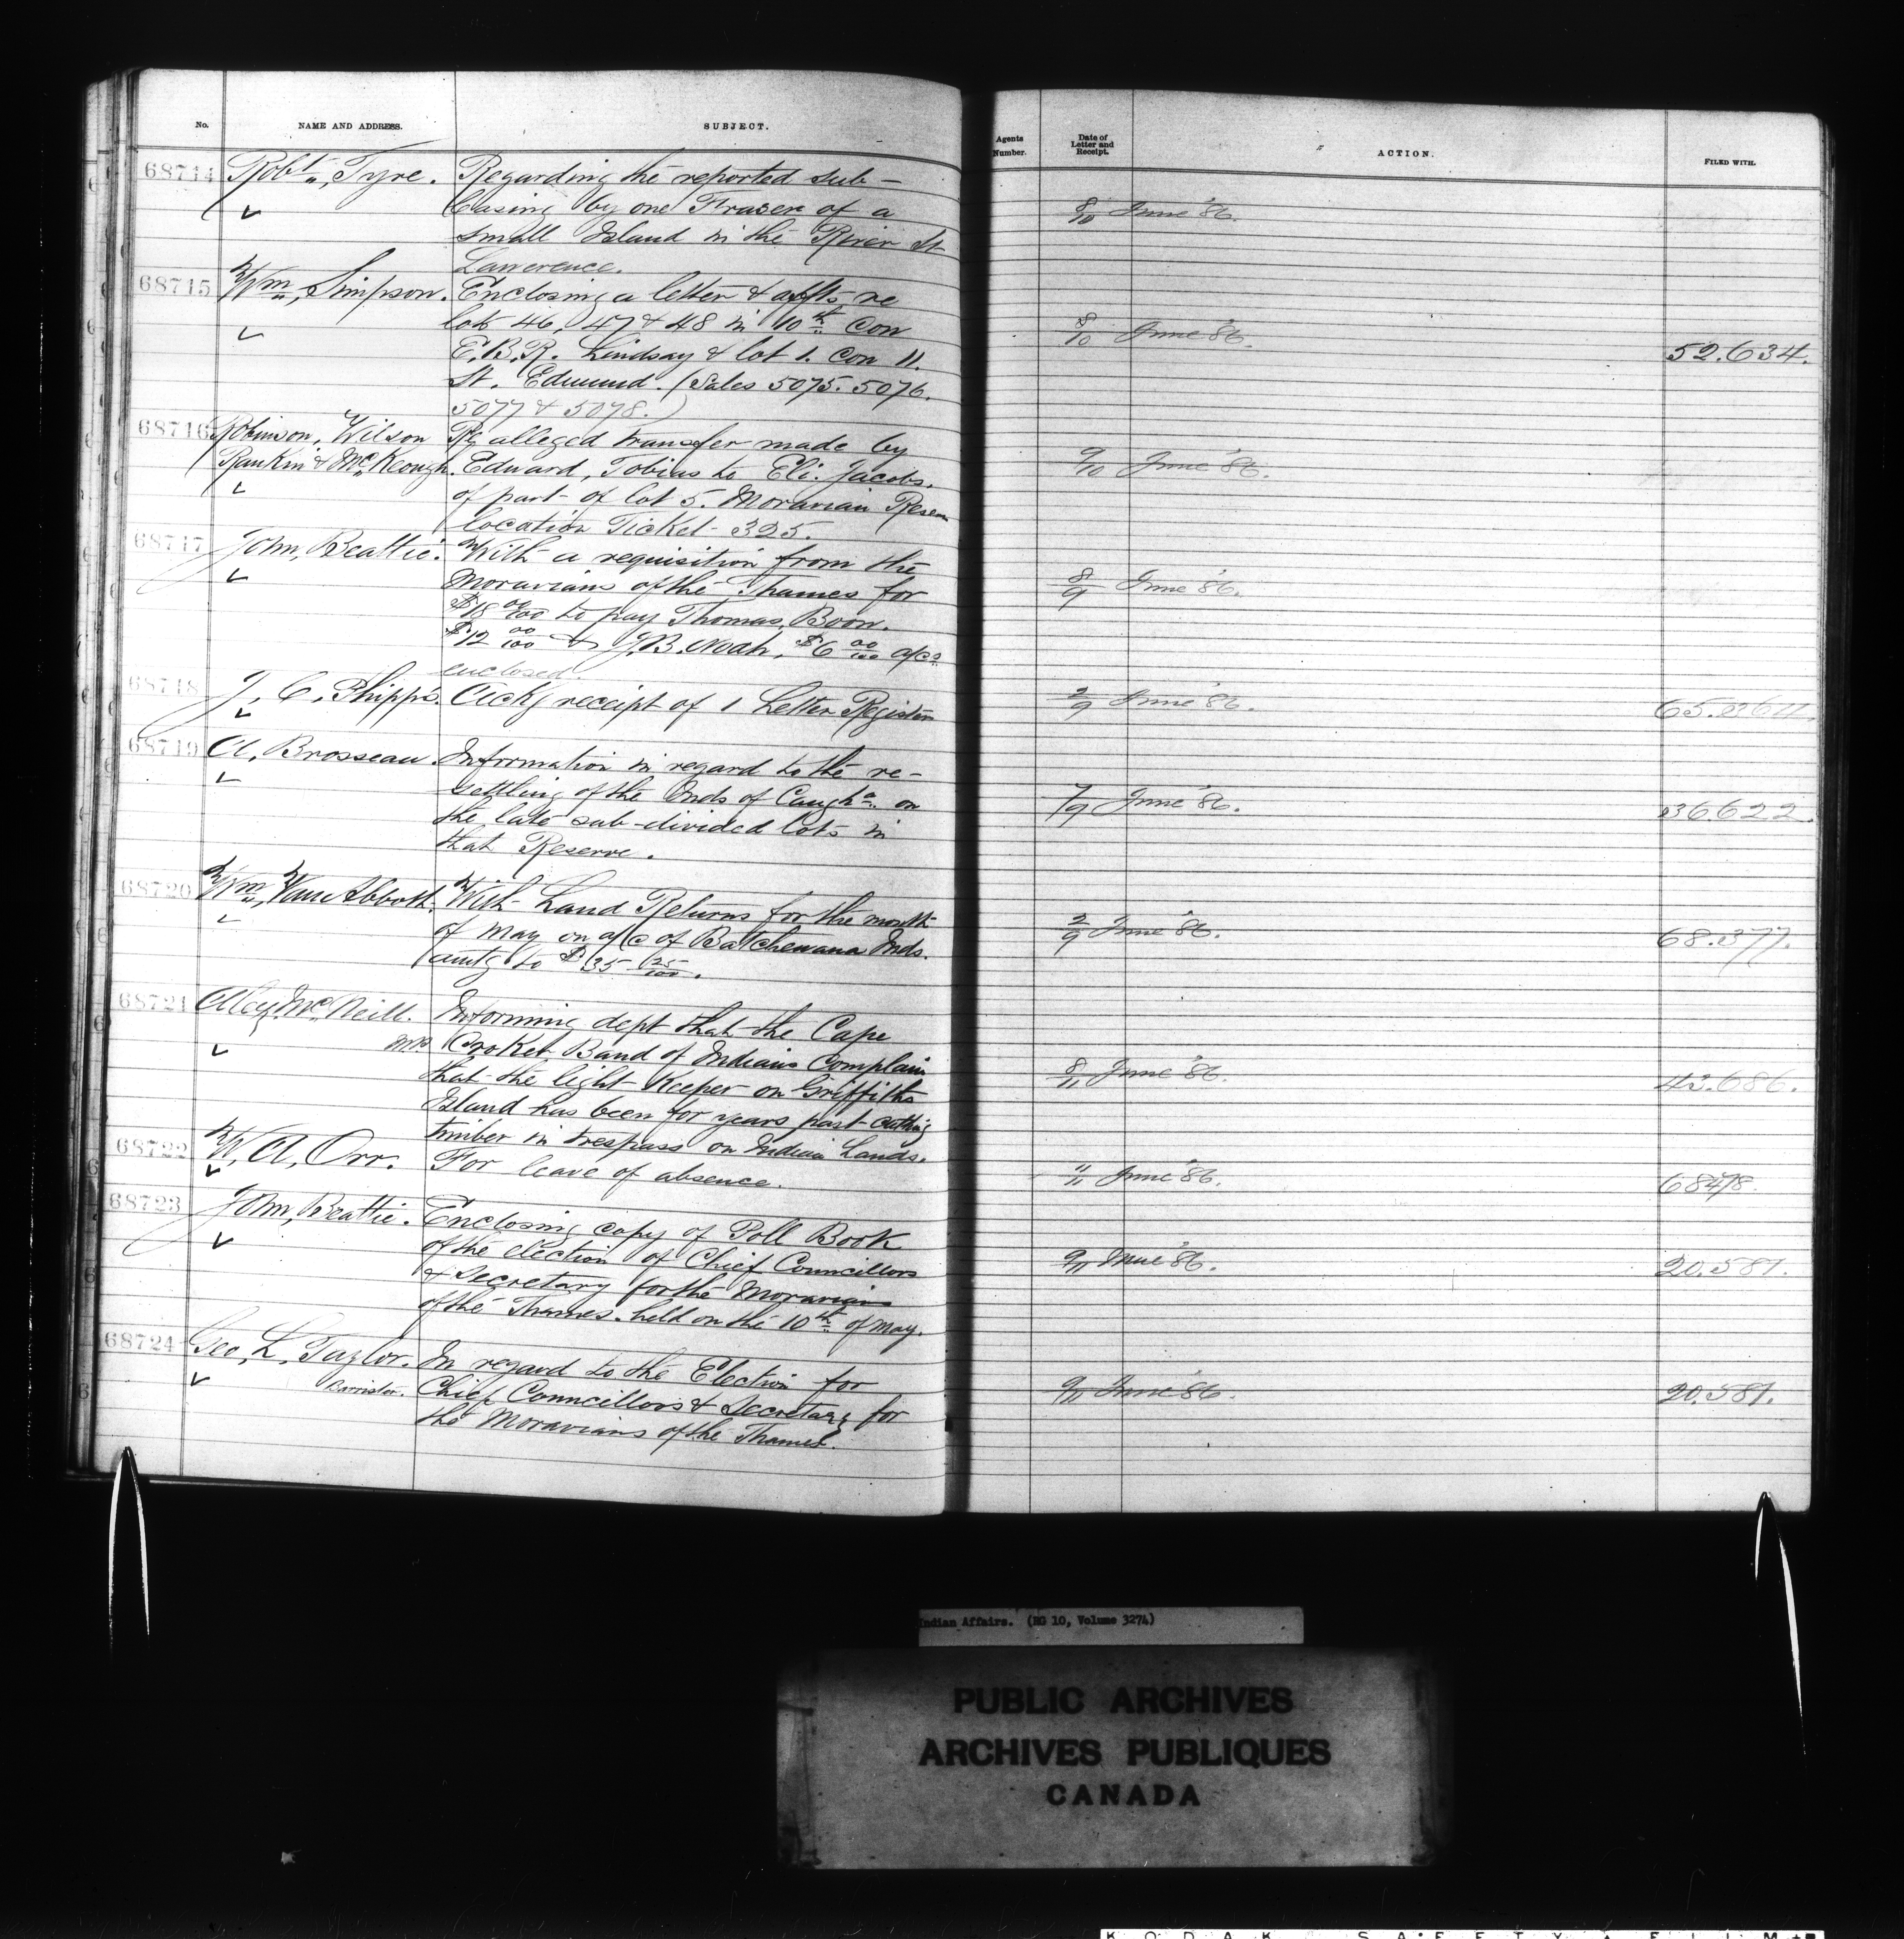 No.
NAME AND ADDRESS.
SUBJECT.
Agents Number.
Date of Letter and Receipt.
ACTION.
FILED WITH.
68714 Robt. Tyre. Regarding the reported sub-
leasing by one Frazer of a
8/10 June '86.
small Island in the River St
Lawrence.
68715 Wm. Simpson. Enclosing a letter & affts. re
lots 46, 47 & 48 in 10th Con
8/10 June '86.
E.B.R. Lindsay & lot 1. Con 11.
52.634.
St. Edmund. (Sales 5075. 5076.
5077 & 5078.)
68716 Robinson, Wilson Re alleged transfer made by
Rankin & McKeough. Edward, Tobias to Eli. Jacobs.
9/10 June '86.
of part of lot 5. Moravian Reserve
location Ticket 325.
68717 John, Beattie. With a requisition from the
Moravians of the Thames for
8/9 June '86.
$18 00/100 to pay Thomas, Boon.
$12 00/100 & J.B. Noah, $6 00/100 a/cs
enclosed.
68718 J, C, Phipps. Ackg receipt of 1 Letter Register
2/9 June '86.
68719 A, Brosseau. Information in regard to the re-
settling of the Inds of Caugha. on
7/9 June '86.
36622.
the late sub-divided lots in
that Reserve.
68720 Wm, Van Abbott. With Land Returns for the month
of May on a/c of Batchewana Inds.
2/9 June '86.
68.377.
amtg to $35 25/100.
68721 Alex, McNeill. M.P. Informing dept that the Cape
Croker Band of Indians Complain
that the light Keeper on Griffiths
8/11 June '86.
43.686.
Island has been for years past cutting
timber in trespass on Indian Lands.
68722 W, A, Orr. For leave of absence.
11/11 June '86.
68478.
68723 John, Beattie. Enclosing copy of Poll Book
of the election of Chief Councillors
9/11 June '86.
20.581.
& Secretary for the Moravians
of the Thames. held on the 10th of May.
68724 Geo, L, Taylor. In regard to the Election for
Barrister. Chief Councillors & Secretary for
9/11 June '86.
20.581.
the Moravians of the Thames.
Indian Affairs. (RG 10, Volume 3274)
PUBLIC ARCHIVES
ARCHIVES PUBLIQUES
CANADA
KODAK SAFETY FILM